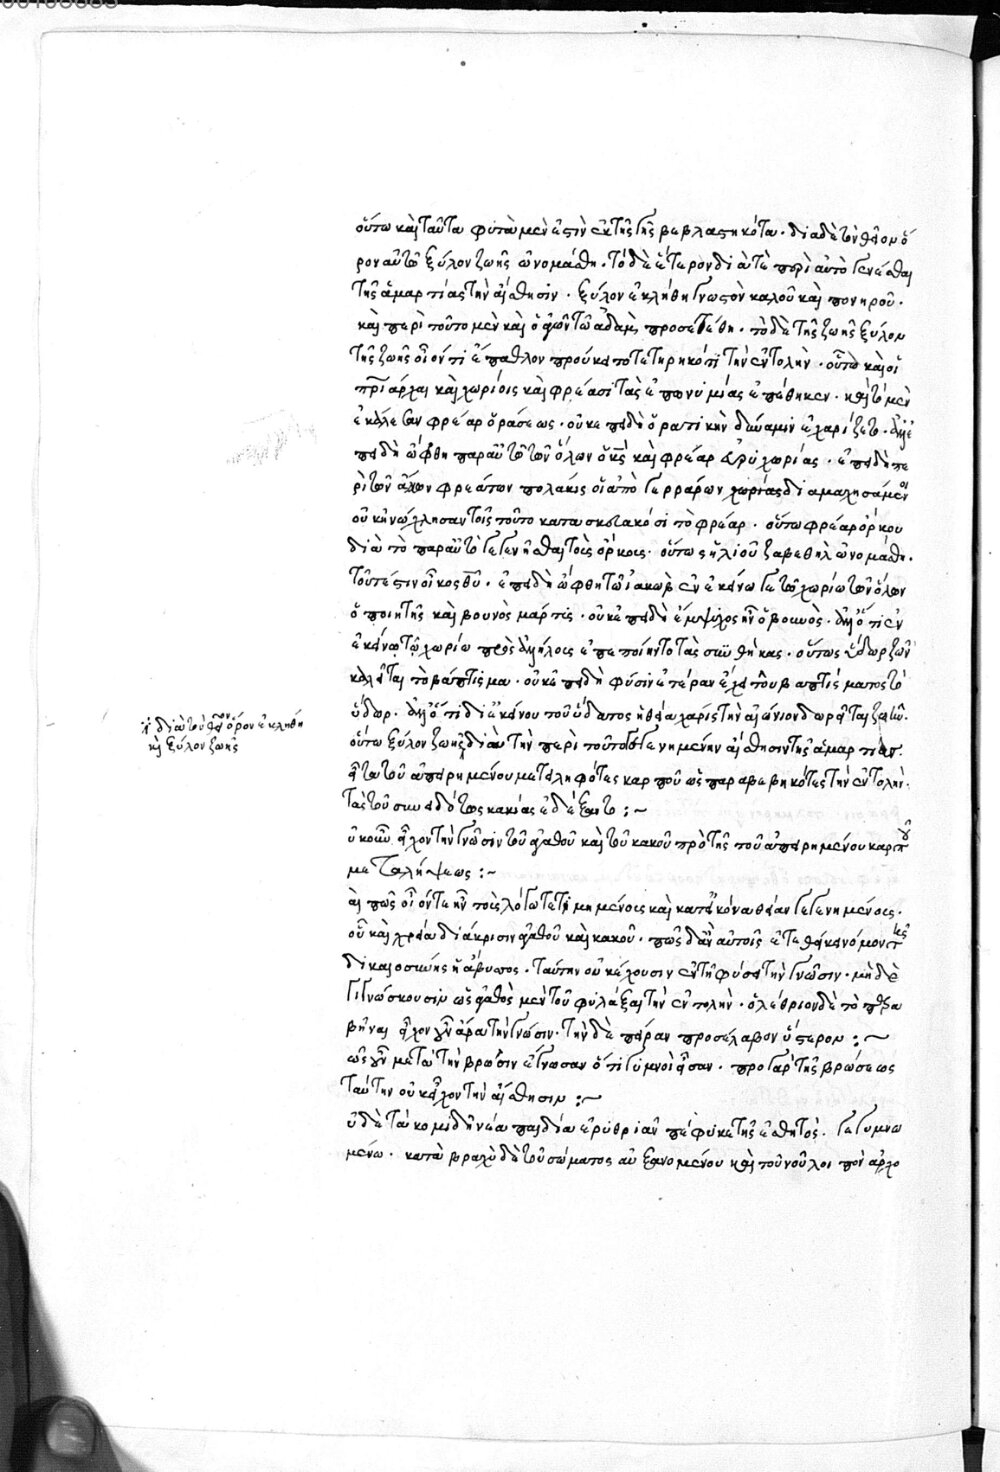 οὕτω καὶ ταῦτα φυτὰ μὲν ἐστὶν ἐκ τῆς γῆς βεβλαστηκότα· διὰ δὲ τὸν θεῖον ὅ
ρον αὐτὸ ξύλον ζωῆς ὠνομάσθη. τὸ δὲ ἕτερον διὰ τὸ περὶ αὐτὸ γενέσθαι
τῆς ἁμαρτίας τὴν αἴσθησιν· ξύλον ἐκλήθη γνωστὸν καλοῦ καὶ πονηροῦ·
καὶ περὶ τοῦτο μὲν καὶ ὁ ἀγὼν τῶ ἀδὰμ προσετέθη· τὸ δὲ τῆς ζωῆς ξύλον
τῆς ζωῆς οἷόν τι ἔπαθλον προύκειτο τετηρηκότι τὴν ἐντολὴν· οὕτω καὶ οἱ
πατριάρχαι καὶ χωρίοις καὶ φρέασι τὰς ἐπωνυμίας ἐπέθηκεν· καὶ τὸ μὲν
ἐκάλεσαν φρέαρ ὁράσεως· οὐκ ἐπειδὴ ὁρατικὴν δύναμιν ἐχαρίζετο· ἀλλ' ἐ
πειδὴ ὤφθη παρ' αὐτῶ τῶν ὅλων ὁ κς καὶ φρέαρ εὐρυχωρίας· ἐπειδὴ πε
ρὶ τῶν ἄλλων φρεάτων πολλάκις οἱ ἀπὸ γερράρων χωρίας διαμαχησάμενοι
οὐκ ἠνώχλησαν τοῖς τοῦτο κατασκευακόσι τὸ φρέαρ· οὕτω φρέαρ ὅρκου
διὰ τὸ παρ' αὐτὸ γεγενῆσθαι τοὺς ὅρκους· οὕτως ἡ λιοῦζα βεθὴλ ὠνομάσθη·
τοῦτ' ἔστιν οἶκος θυ· ἐπειδὴ ὤφθη τῶ ἰακὼβ ἐν ἐκείνω γε τῶ χωρίω τῶν ὅλων
ὁ ποιητής καὶ βουνὸς μάρτυς· οὐκ ἐπειδὴ ἔμψυχος ἦν ὁ βουνὸς· ἀλλ' ὅτι ἐν
ἐκείνω τῶ χωρίω πρὸς ἀλλήλους ἐπεποίηντο τὰς συνθήκας· οὕτως ὕδωρ ζῶν
καλεῖται τὸ βάπτισμα· οὐκ ἐπειδὴ φύσιν ἑτέραν ἔχει τὸ τοῦ βαπτίσματος τὸ
ὕδωρ· ἀλλ' ὅτι δι' ἐκείνου τοῦ ὕδατος ἡ θεία χάρις τὴν αἰώνιον δωρεῖται ζωὴν·
οὕτω ξύλον ζωῆς διὰ τὴν περὶ τοῦτο γεγενημένην αἴσθησιν τῆς ἁμαρτίας.
εἶτα τοῦ ἀπειρημένου μετειληφότες καρποῦ ὡς παραβεβηκότες τὴν ἐντολὴν·
τὰς τοῦ συνειδότος κακίας ἐδέξαντο :~
οὐκοῦν εἶχον τὴν γνῶσιν τοῦ ἀγαθοῦ καὶ τοῦ κακοῦ πρὸ τῆς τοῦ ἀπειρημένου καρποῦ
μεταλήψεως :~
καὶ πῶς οἷόν τε ἦν τοὺς λόγω τετιμημένους καὶ κατ' εἰκόνα θείαν γεγενημένους·
οὐκ ἔχειν διάκρισιν ἀγαθοῦ καὶ κακοῦ· πῶς δ' ἂν αὐτοῖς ἐτεθείκει νόμον
δικαιοσύνης ἡ ἄβυσσος· ταύτην οὐκ ἔχουσιν ἐν τῆ φύσει τὴν γνῶσιν· μηδὲ
γιγνώσκουσιν ὡς ἀγαθὸς μὲν τοῦ φυλάξαι τὴν ἐντολὴν· ὀλέθριον δὲ τὸ παρα
βῆναι εἶχον γοῦν ἄρα τὴν γνῶσιν· τὴν δὲ πεῖραν προσέλαβον ὕστερον :~
ὡς γοῦν μετὰ τὴν βρῶσιν ἔγνωσαν ὅτι γυμνοὶ ἦσαν· πρὸ γὰρ τῆς βρώσεως
ταύτην οὐκ εἶχον τὴν αἴσθησιν :~
οὐδὲ τὰ κομιδῆ νέα παιδία ἐρυθριᾶν πέφυκε τῆς ἐσθῆτος· γεγυμνω
μένω· κατὰ βραχὺ δὲ τοῦ σώματος αὐξανομένου καὶ τοῦ νοῦ λοιπὸν ἀρχο
ἢ διὰ τὸν θεῖον ὅρον ἐκλήθη
καὶ ξύλον ζωῆς